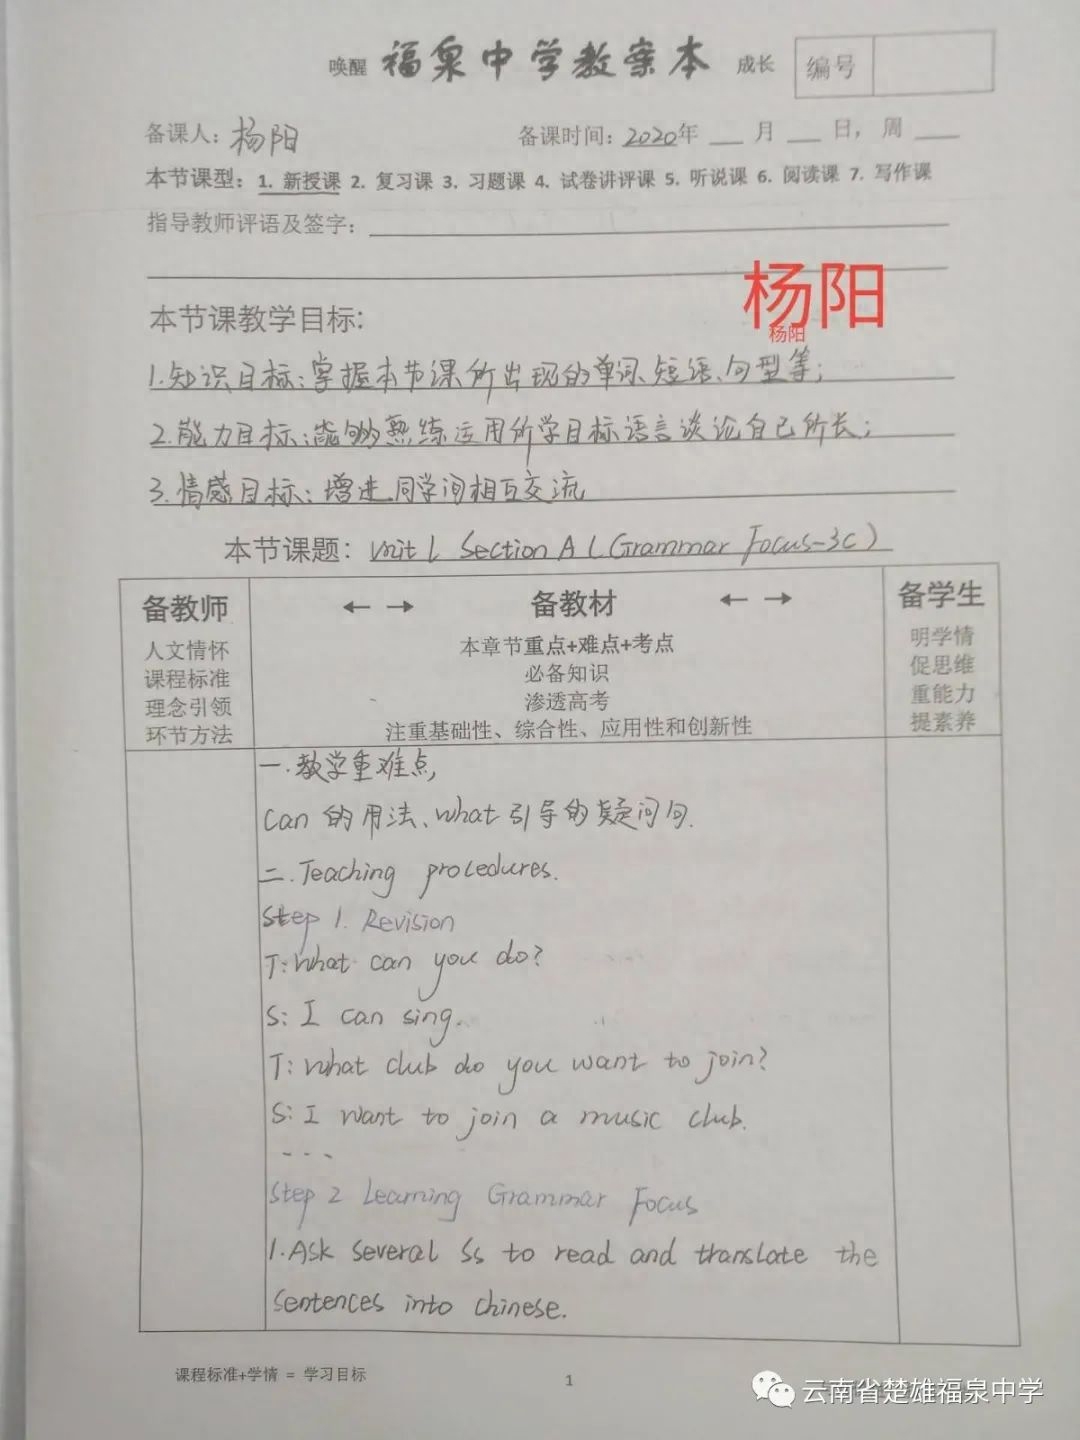 唤醒 福泉中学教案本 成长 编号
备课人：杨阳 备课时间：2020年 ___ 月 ___ 日，周 ___
本节课型：1. 新授课 2. 复习课 3. 习题课 4. 试卷讲评课 5. 听说课 6. 阅读课 7. 写作课
指导教师评语及签字：
杨阳
杨阳
本节课教学目标:
1.知识目标：掌握本节课所出现的单词、短语、句型等；
2.能力目标：能够熟练运用所学目标语言谈论自己所长；
3.情感目标：增进同学间相互交流
本节课题：Unit 1 Section A (Grammar Focus-3c)
备教师 ← → 备教材 ← → 备学生
人文情怀 本章节重点+难点+考点 明学情
课程标准 必备知识 促思维
理念引领 渗透高考 重能力
环节方法 注重基础性、综合性、应用性和创新性 提素养
一.教学重难点,
can 的用法、what引导的疑问句.
二.Teaching procedures.
Step 1. Revision
T: What can you do?
S: I can sing.
T: What club do you want to join?
S: I want to join a music club.
- - - .
Step 2 Learning Grammar Focus
1.Ask several Ss to read and translate the
sentences into chinese.
课程标准+学情 = 学习目标 1
云南省楚雄福泉中学